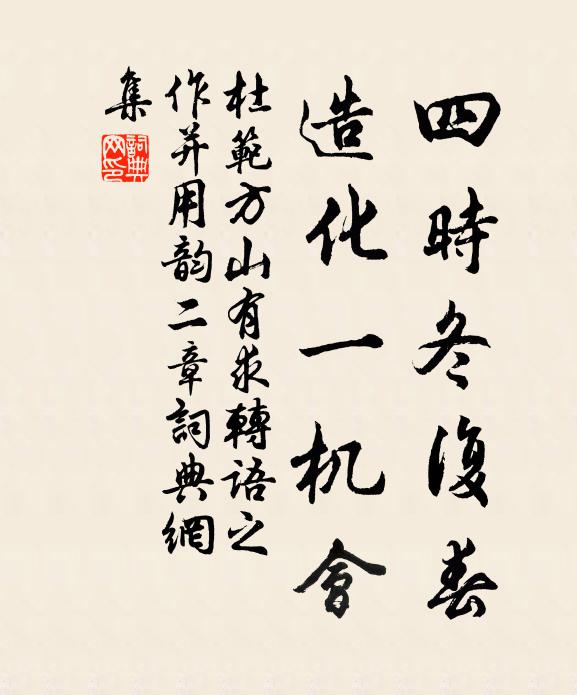 四時冬復春
造化一机會
杜範方山有求轉語之
作并用韵二章詞典網
集
詞典網印